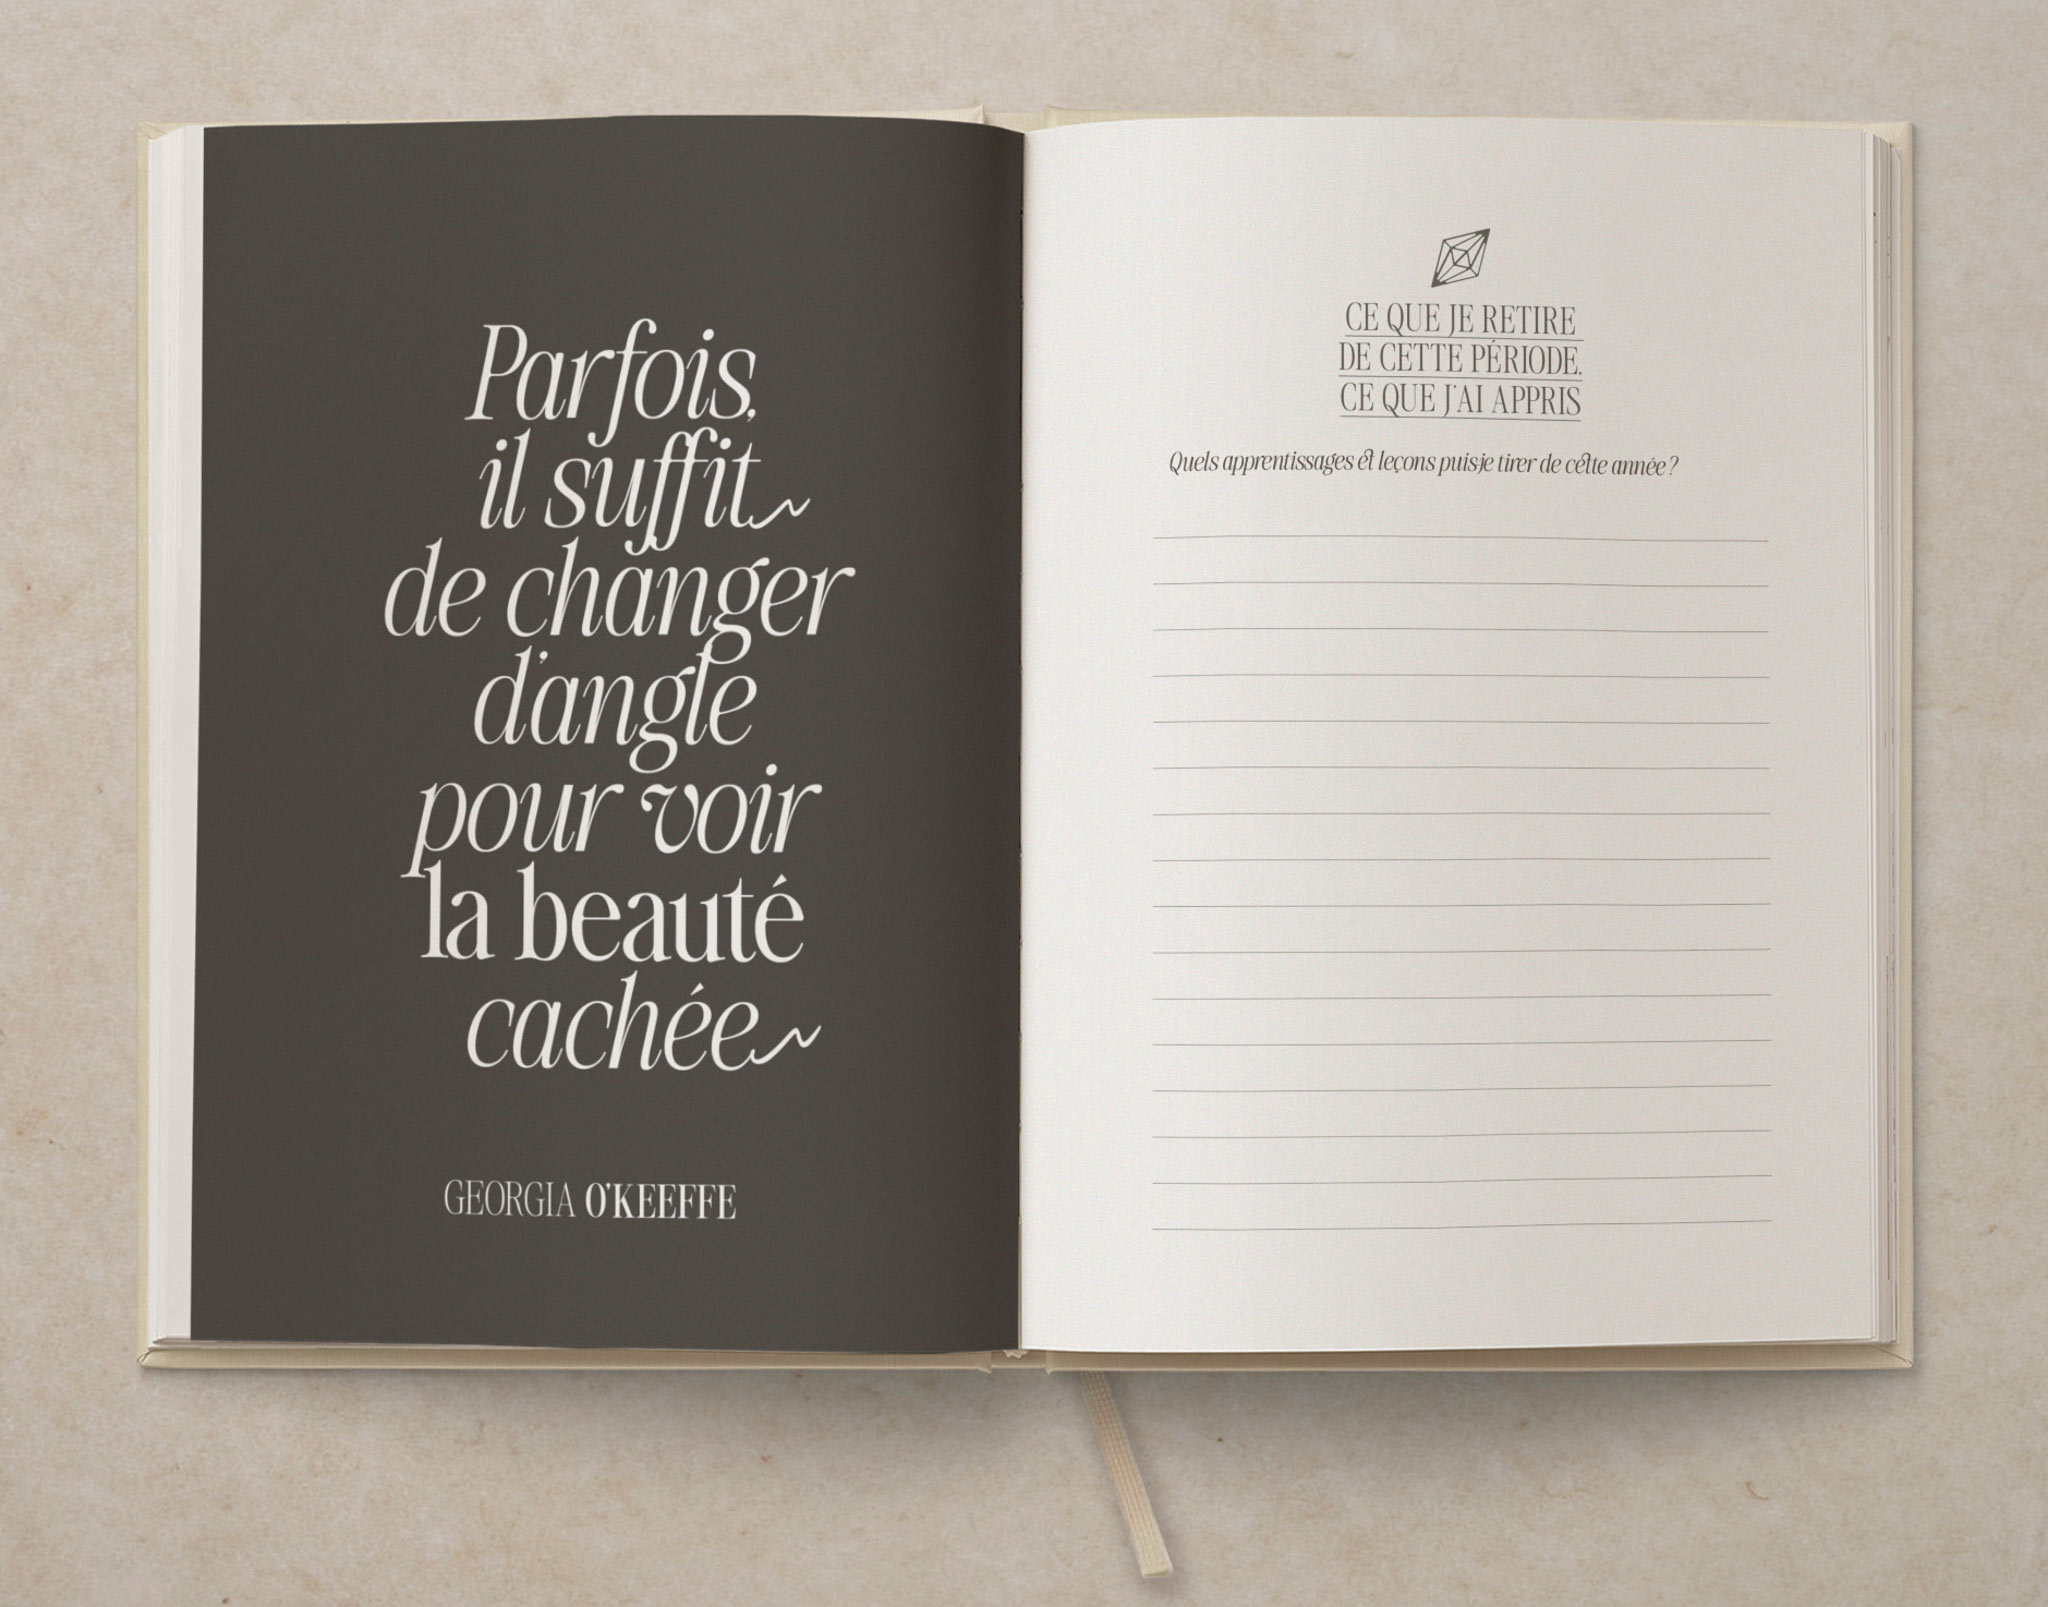 Parfois,
il suffit
de changer
d'angle
pour voir
la beauté
cachée
GEORGIA O'KEEFFE
CE QUE JE RETIRE
DE CETTE PÉRIODE.
CE QUE J'AI APPRIS
Quels apprentissages et leçons puisje tirer de cette année ?